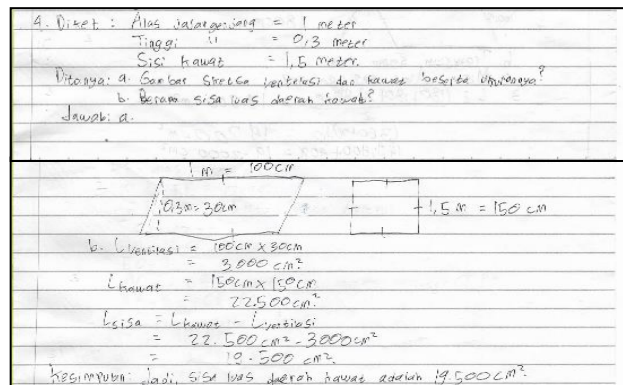 4. Diket : Alas jajargenjang = 1 meter
Tinggi " = 0,3 meter
Sisi kawat = 1,5 meter.
Ditanya: a. Gambar sketsa ventelasi dan kawat beserta ukurannya?
b. Berapa sisa luas daerah kawat?
Jawab: a.
1 m = 100cm
0,3m = 30cm
1,5 m = 150 cm
b. Lventilasi = 100 cm x 30cm
= 3.000 cm²
Lkawat = 150cm x 150 cm
= 22.500 cm²
Lsisa = Lkawat - Lventilasi
= 22.500 cm² - 3000cm²
= 19.500 cm²
Kesimpulan: Jadi, sisa luas daerah kawat adalah 19.500 cm².